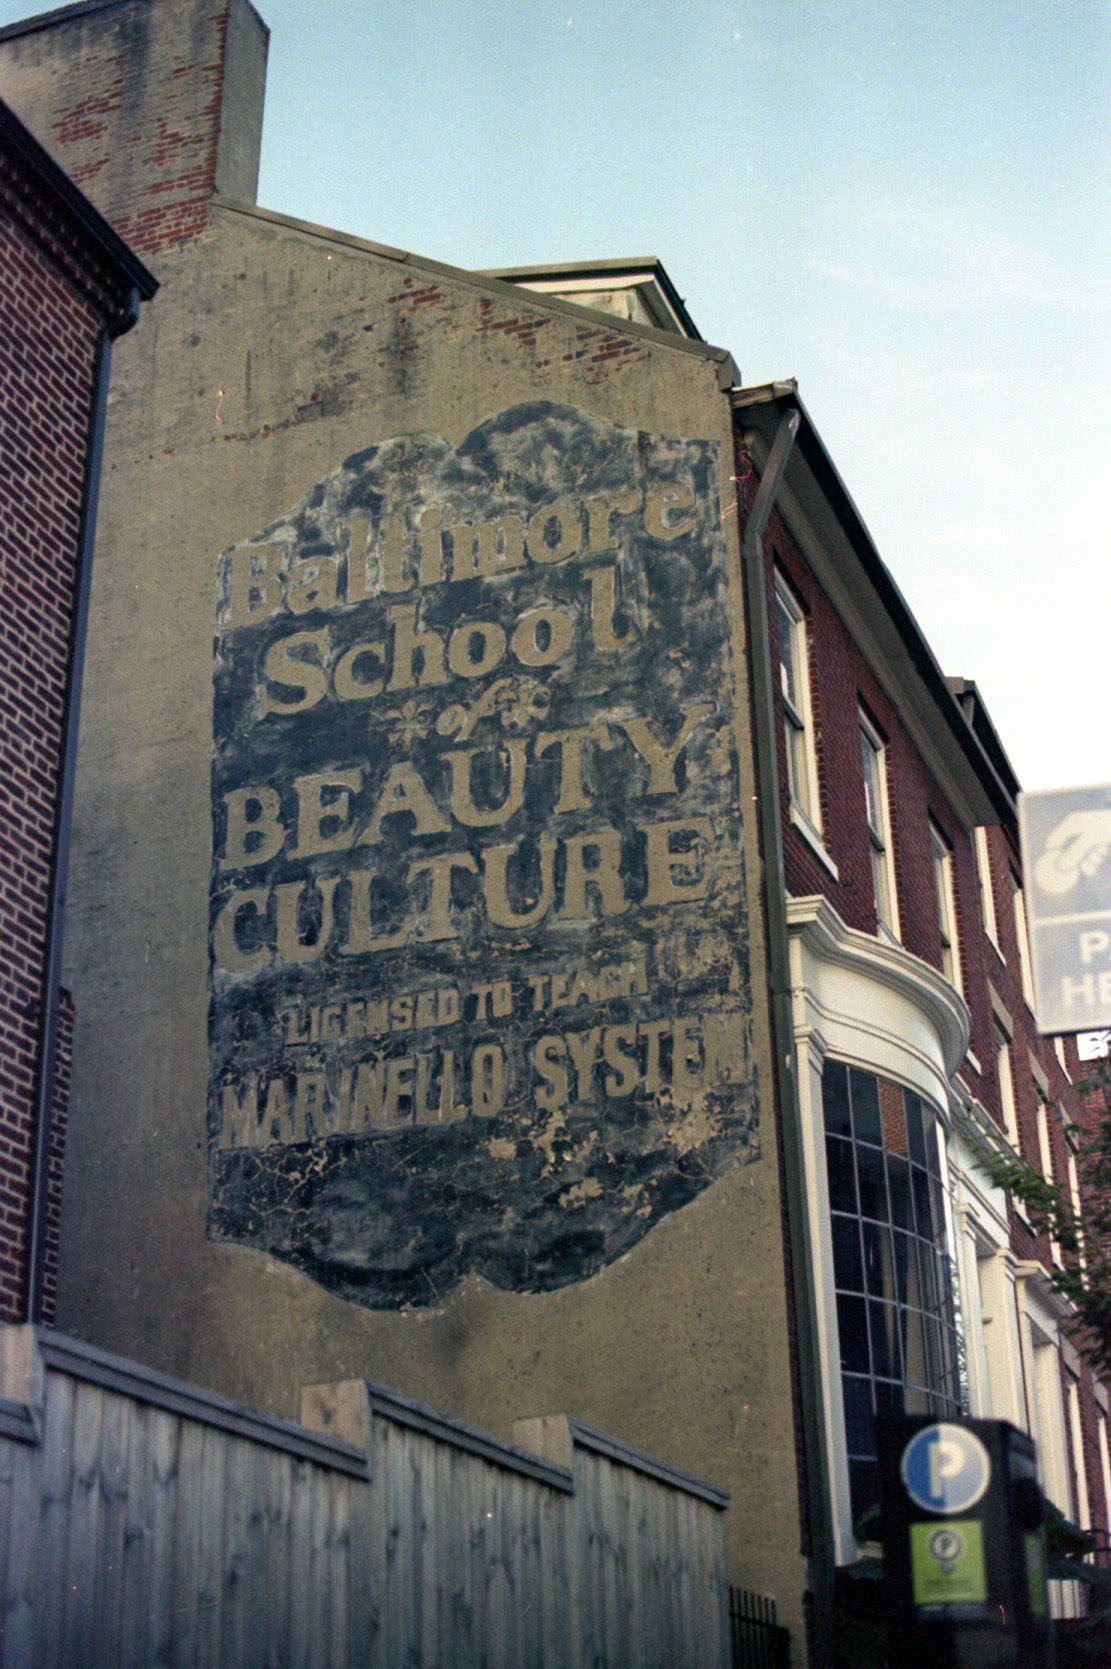 Baltimore
School
of
BEAUTY
CULTURE
LICENSED TO TEACH
MARINELLO SYSTEM
P
P